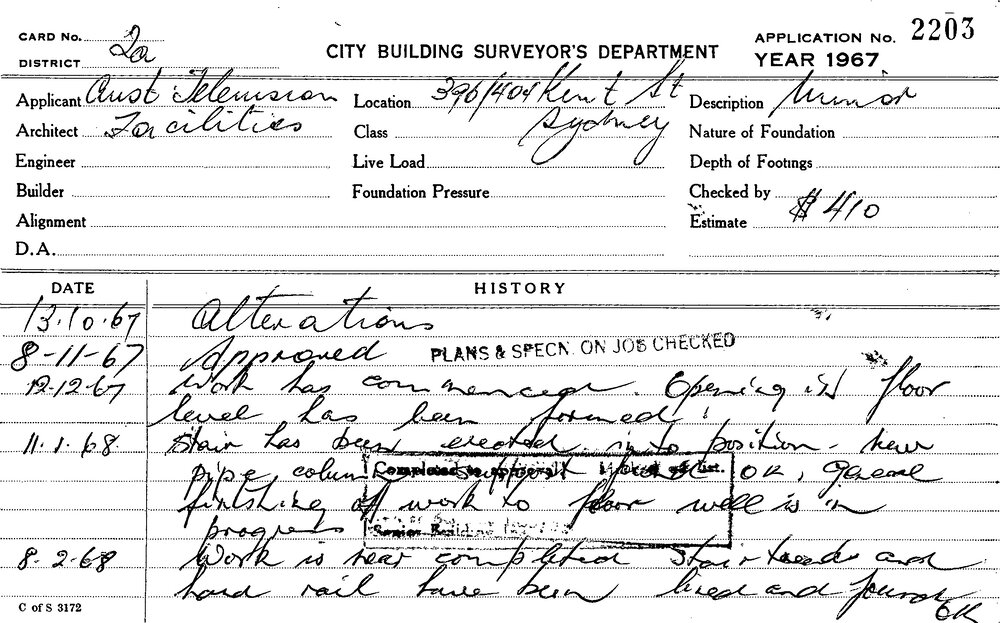 CARD No. 2a
DISTRICT
CITY BUILDING SURVEYOR'S DEPARTMENT
APPLICATION No. 2203
YEAR 1967
Applicant Aust Television
Location 396/404 Kent St
Description Minor
Architect Facilities
Class Sydney
Nature of Foundation
Engineer
Live Load
Depth of Footings
Builder
Foundation Pressure
Checked by
Alignment
Estimate $410
D.A.
DATE HISTORY
13.10.67 Alterations
8-11-67 Approved PLANS & SPECN. ON JOB CHECKED
12-12-67 Work has commenced. Opening in floor
level has been formed.
11.1.68. Stair has been erected into position - new
pipe column support OK, general
finishing of work to floor well is in
progress
Completed
Senior Building
8.2.68 Work is near completion Stair treads and
hand rail have been fixed and found
OK
C of S 3172